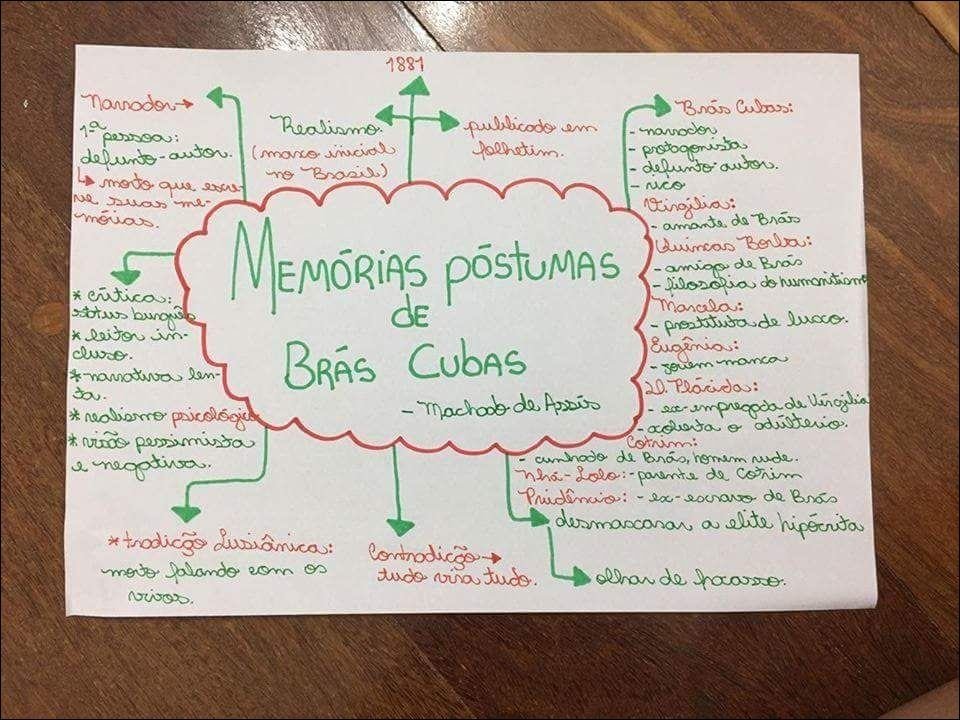 1881
Narrador →
1ª
pessoa:
defunto-autor.
↳ morto que escre-
ve suas me-
mórias.
Realismo.
(marco inicial
no Brasil)
publicado em
folhetim.
Brás Cubas:
- narrador
- protagonista
- defunto autor.
- rico
Virgília:
- amante de Brás
Quincas Borba:
- amigo de Brás
- filosofia do humanitismo
Marcela:
- prostituta de luxo.
Eugênia:
- jovem manca
D. Plácida:
- ex-empregada de Virgília
- acoberta o adultério.
Cotrim:
- cunhado de Brás, homem rude.
Nhá-Lolo: - parente de Cotrim
Prudêncio: - ex-escravo de Brás
Memórias póstumas
de
Brás Cubas
- Machado de Assis
* crítica:
status burguês
* leitor in-
cluso.
* narrativa len-
ta.
* realismo psicológico
* visão pessimista
e negativa.
* tradição Lusiânica:
morto falando com os
vivos.
Contradição →
tudo visa tudo.
desmascarar a elite hipócrita
olhar de fracasso.